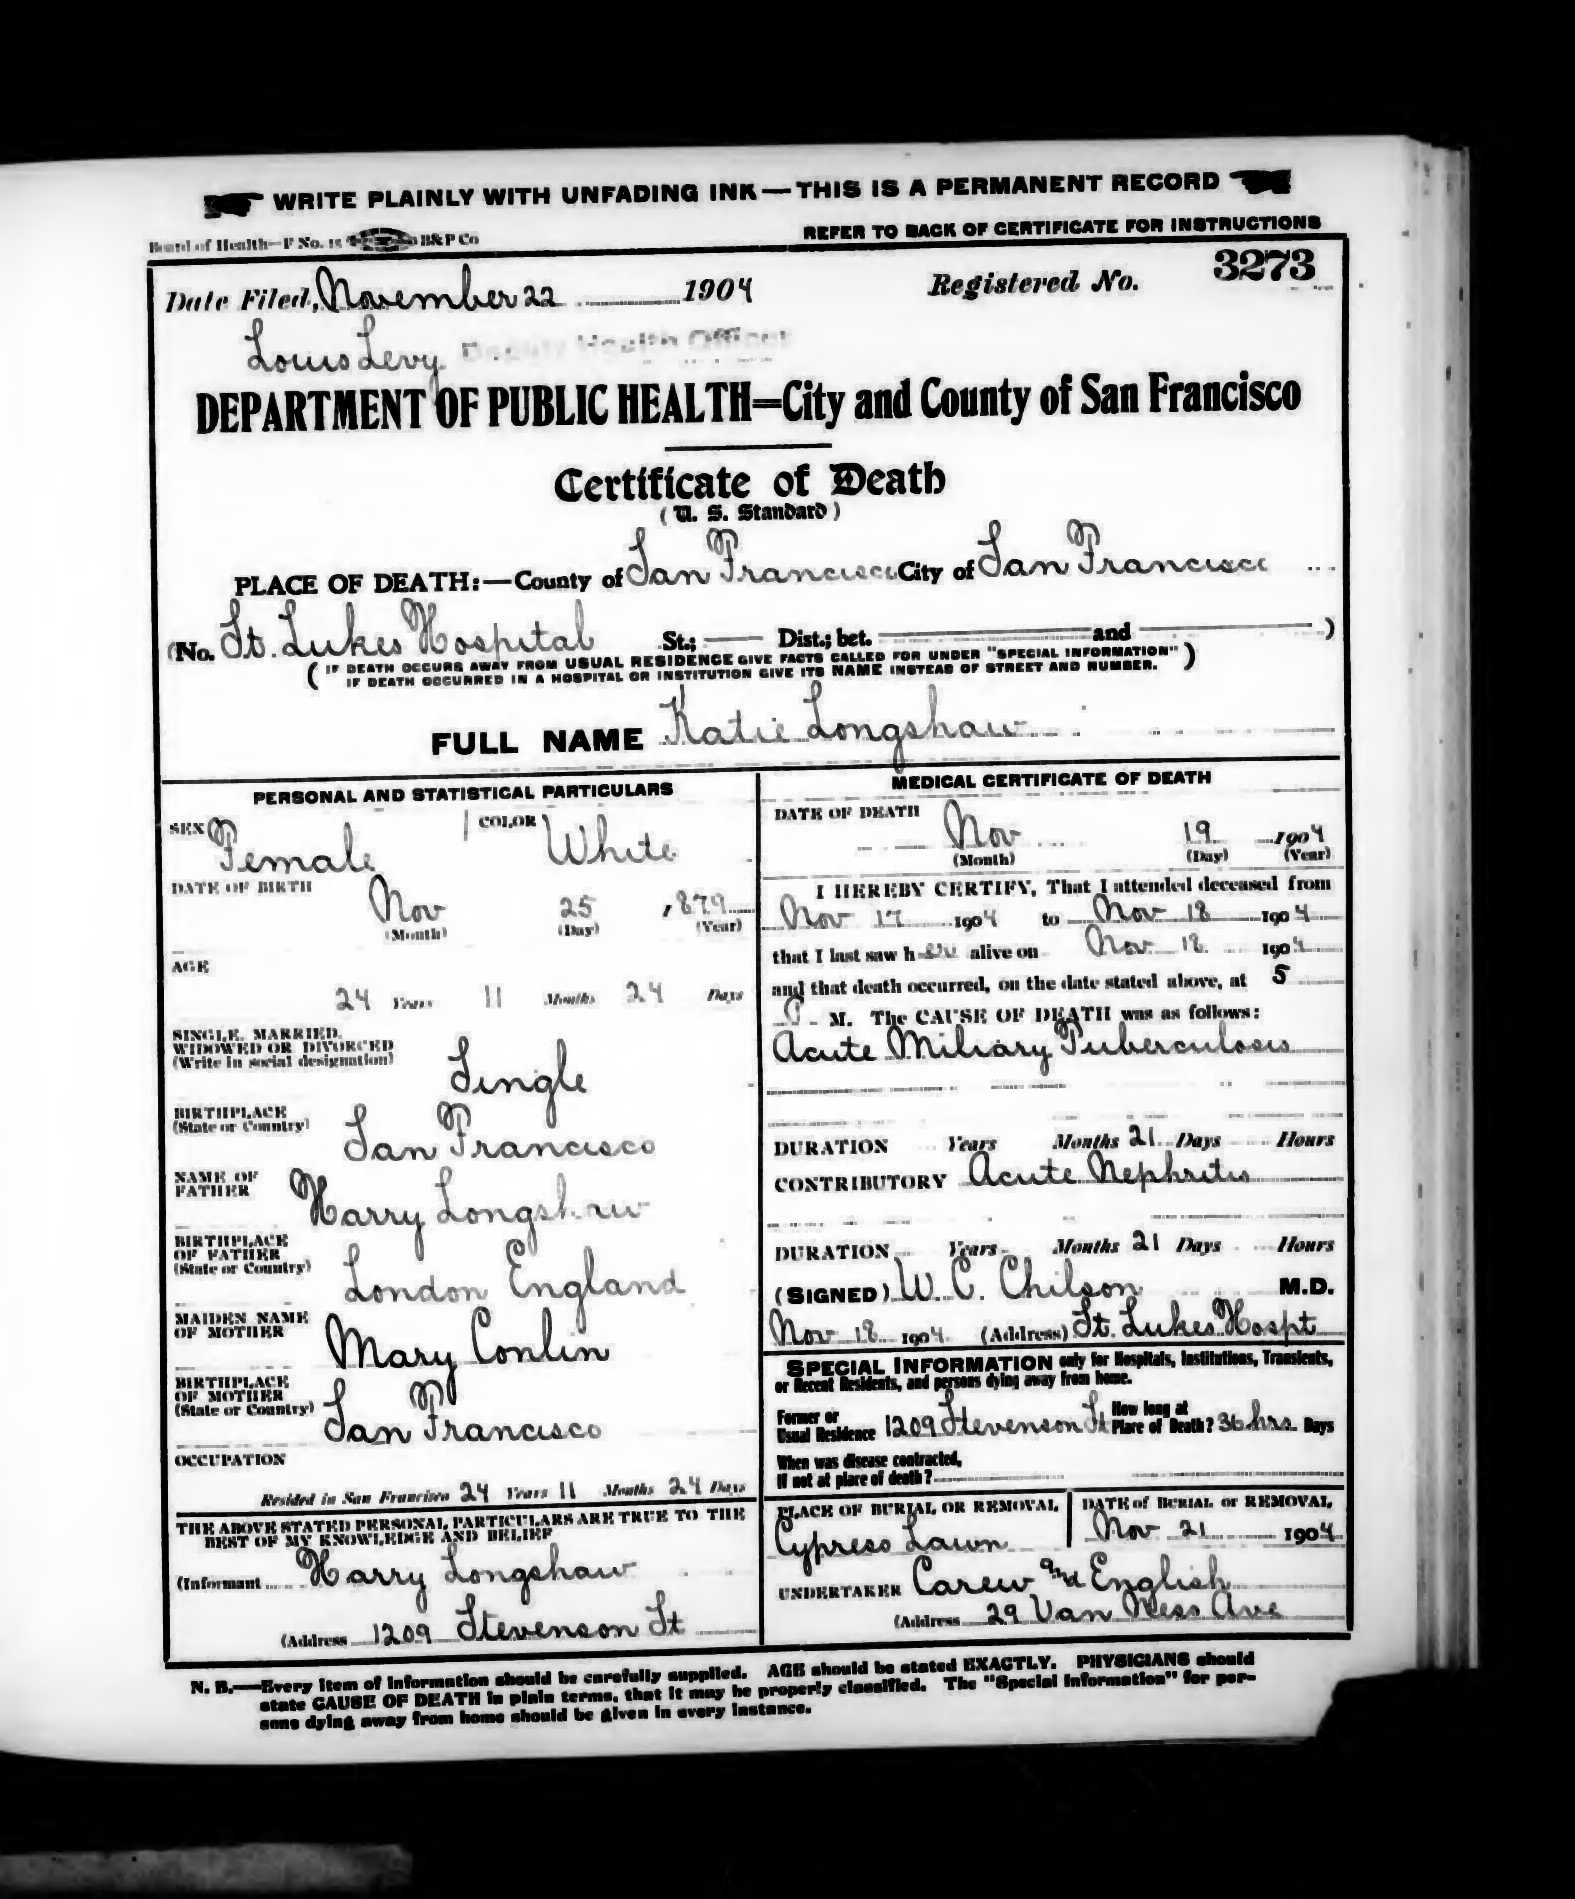 WRITE PLAINLY WITH UNFADING INK — THIS IS A PERMANENT RECORD
Board of Health—F No. 15 B&P Co
REFER TO BACK OF CERTIFICATE FOR INSTRUCTIONS
Date Filed, November 22 1904 Registered No. 3273
Louis Levy Deputy Health Officer
DEPARTMENT OF PUBLIC HEALTH=City and County of San Francisco
Certificate of Death
(U. S. Standard)
PLACE OF DEATH:—County of San Francisco City of San Francisco
(No. St. Lukes Hospital St.; Dist.; bet. and )
(IF DEATH OCCURS AWAY FROM USUAL RESIDENCE GIVE FACTS CALLED FOR UNDER "SPECIAL INFORMATION"
IF DEATH OCCURRED IN A HOSPITAL OR INSTITUTION GIVE ITS NAME INSTEAD OF STREET AND NUMBER.)
FULL NAME Katie Longshaw
PERSONAL AND STATISTICAL PARTICULARS
SEX Female COLOR White
DATE OF BIRTH
Nov 25 1879
(Month) (Day) (Year)
AGE
24 Years 11 Months 24 Days
SINGLE, MARRIED,
WIDOWED OR DIVORCED
(Write in social designation)
Single
BIRTHPLACE
(State or Country)
San Francisco
NAME OF
FATHER
Harry Longshaw
BIRTHPLACE
OF FATHER
(State or Country)
London England
MAIDEN NAME
OF MOTHER
Mary Conlin
BIRTHPLACE
OF MOTHER
(State or Country)
San Francisco
OCCUPATION
Resided in San Francisco 24 Years 11 Months 24 Days
THE ABOVE STATED PERSONAL PARTICULARS ARE TRUE TO THE
BEST OF MY KNOWLEDGE AND BELIEF
(Informant Harry Longshaw
(Address 1209 Stevenson St
MEDICAL CERTIFICATE OF DEATH
DATE OF DEATH
Nov 19 1904
(Month) (Day) (Year)
I HEREBY CERTIFY, That I attended deceased from
Nov 17 1904 to Nov 18 1904
that I last saw her alive on Nov 18 1904
and that death occurred, on the date stated above, at 5
M. The CAUSE OF DEATH was as follows:
Acute Miliary Tuberculosis
DURATION Years Months 21 Days Hours
CONTRIBUTORY Acute Nephritis
DURATION Years Months 21 Days Hours
(SIGNED) W. C. Chilson M.D.
Nov 18 1904 (Address) St. Lukes Hospt
SPECIAL INFORMATION only for Hospitals, Institutions, Transients,
or Recent Residents, and persons dying away from home.
Former or
Usual Residence 1209 Stevenson St
How long at
Place of Death? 36 hrs. Days
When was disease contracted,
If not at place of death?
PLACE OF BURIAL OR REMOVAL
Cypress Lawn
DATE of BURIAL or REMOVAL
Nov 21 1904
UNDERTAKER Carew and English
(Address 29 Van Ness Ave
N. B.—Every item of information should be carefully supplied. AGE should be stated EXACTLY. PHYSICIANS should
state CAUSE OF DEATH in plain terms, that it may be properly classified. The "Special Information" for per-
sons dying away from home should be given in every instance.